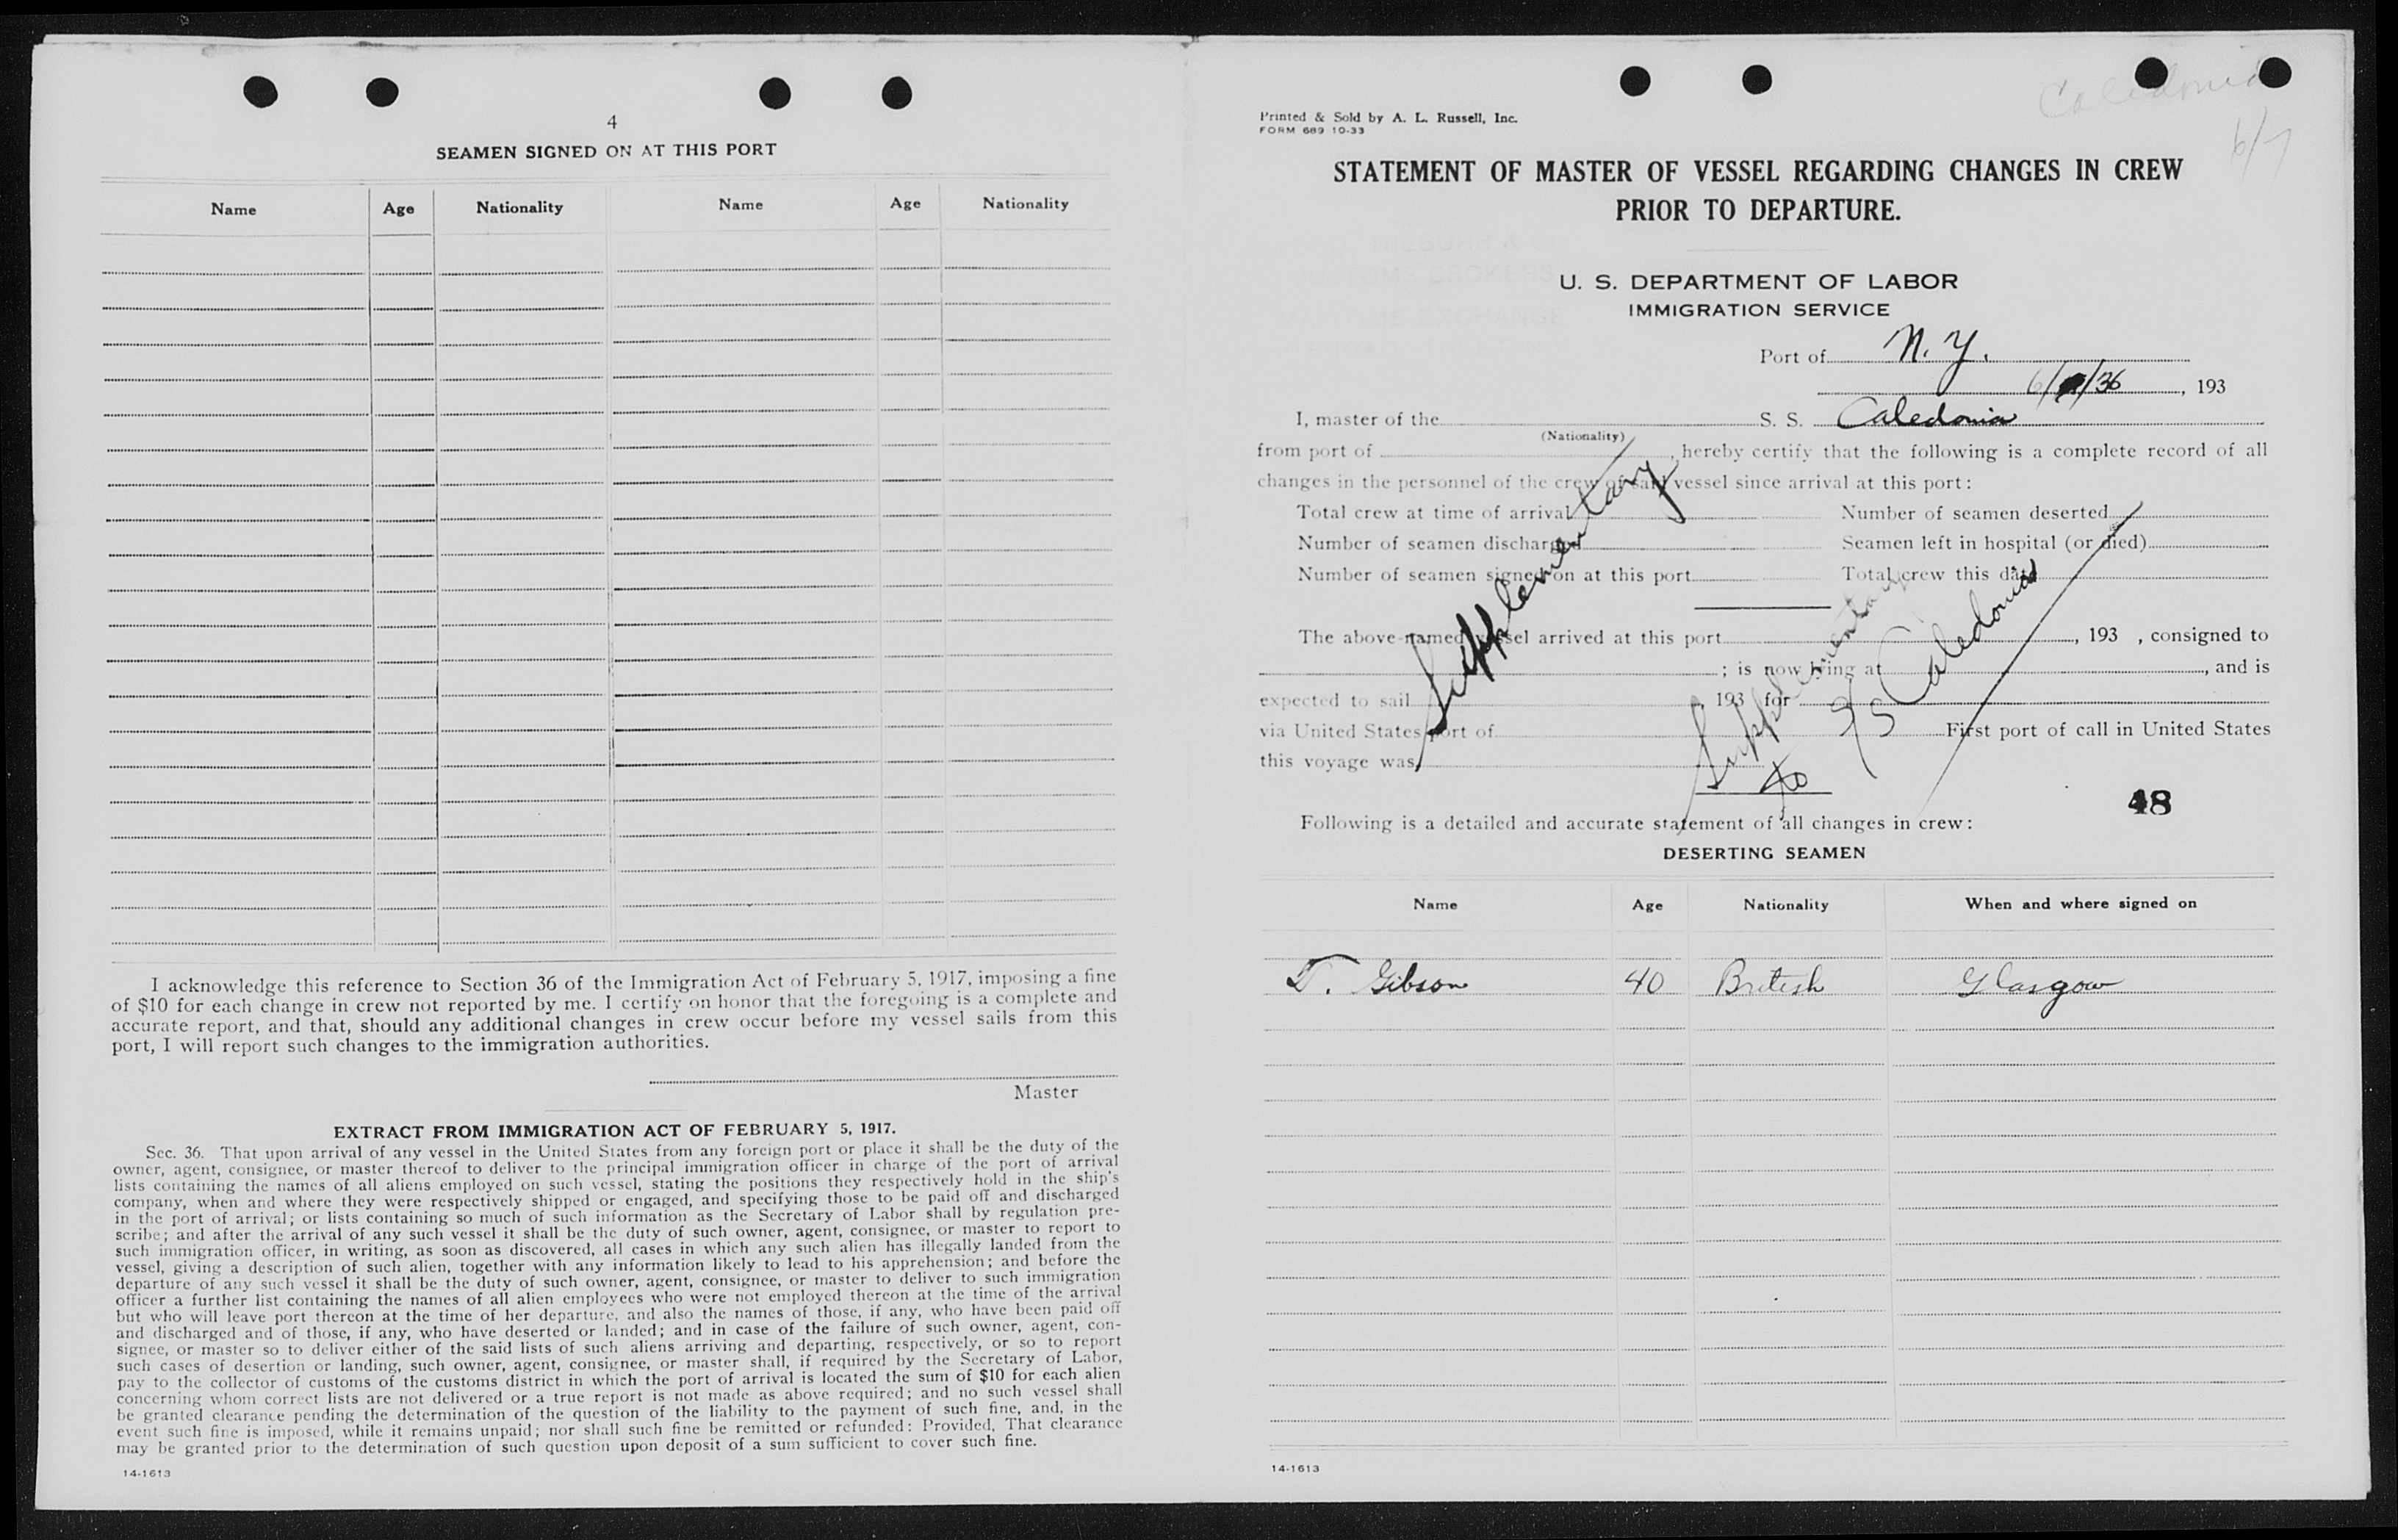 4
SEAMEN SIGNED ON AT THIS PORT
Name Age Nationality Name Age Nationality
I acknowledge this reference to Section 36 of the Immigration Act of February 5, 1917, imposing a fine
of $10 for each change in crew not reported by me. I certify on honor that the foregoing is a complete and
accurate report, and that, should any additional changes in crew occur before my vessel sails from this
port, I will report such changes to the immigration authorities.
Master
EXTRACT FROM IMMIGRATION ACT OF FEBRUARY 5, 1917.
Sec. 36. That upon arrival of any vessel in the United States from any foreign port or place it shall be the duty of the
owner, agent, consignee, or master thereof to deliver to the principal immigration officer in charge of the port of arrival
lists containing the names of all aliens employed on such vessel, stating the positions they respectively hold in the ship's
company, when and where they were respectively shipped or engaged, and specifying those to be paid off and discharged
in the port of arrival; or lists containing so much of such information as the Secretary of Labor shall by regulation pre-
scribe; and after the arrival of any such vessel it shall be the duty of such owner, agent, consignee, or master to report to
such immigration officer, in writing, as soon as discovered, all cases in which any such alien has illegally landed from the
vessel, giving a description of such alien, together with any information likely to lead to his apprehension; and before the
departure of any such vessel it shall be the duty of such owner, agent, consignee, or master to deliver to such immigration
officer a further list containing the names of all alien employees who were not employed thereon at the time of the arrival
but who will leave port thereon at the time of her departure, and also the names of those, if any, who have been paid off
and discharged and of those, if any, who have deserted or landed; and in case of the failure of such owner, agent, con-
signee, or master so to deliver either of the said lists of such aliens arriving and departing, respectively, or so to report
such cases of desertion or landing, such owner, agent, consignee, or master shall, if required by the Secretary of Labor,
pay to the collector of customs of the customs district in which the port of arrival is located the sum of $10 for each alien
concerning whom correct lists are not delivered or a true report is not made as above required; and no such vessel shall
be granted clearance pending the determination of the question of the liability to the payment of such fine, and, in the
event such fine is imposed, while it remains unpaid; nor shall such fine be remitted or refunded: Provided, That clearance
may be granted prior to the determination of such question upon deposit of a sum sufficient to cover such fine.
14-1613
Caledonia
6/7
Printed & Sold by A. L. Russell, Inc.
FORM 689 10-33
STATEMENT OF MASTER OF VESSEL REGARDING CHANGES IN CREW
PRIOR TO DEPARTURE.
U. S. DEPARTMENT OF LABOR
IMMIGRATION SERVICE
Port of N. Y.
6/ /36, 193
I, master of the S. S. Caledonia
(Nationality)
from port of , hereby certify that the following is a complete record of all
changes in the personnel of the crew of said vessel since arrival at this port:
Total crew at time of arrival Number of seamen deserted
Number of seamen discharged Seamen left in hospital (or died)
Number of seamen signed on at this port Total crew this date
Supplementary
Supplementary
to
S/S Caledonia
The above-named vessel arrived at this port , 193 , consigned to
; is now lying at , and is
expected to sail , 193 for
via United States port of First port of call in United States
this voyage was
48
Following is a detailed and accurate statement of all changes in crew:
DESERTING SEAMEN
Name Age Nationality When and where signed on
T. Gibson 40 British Glasgow
14-1613